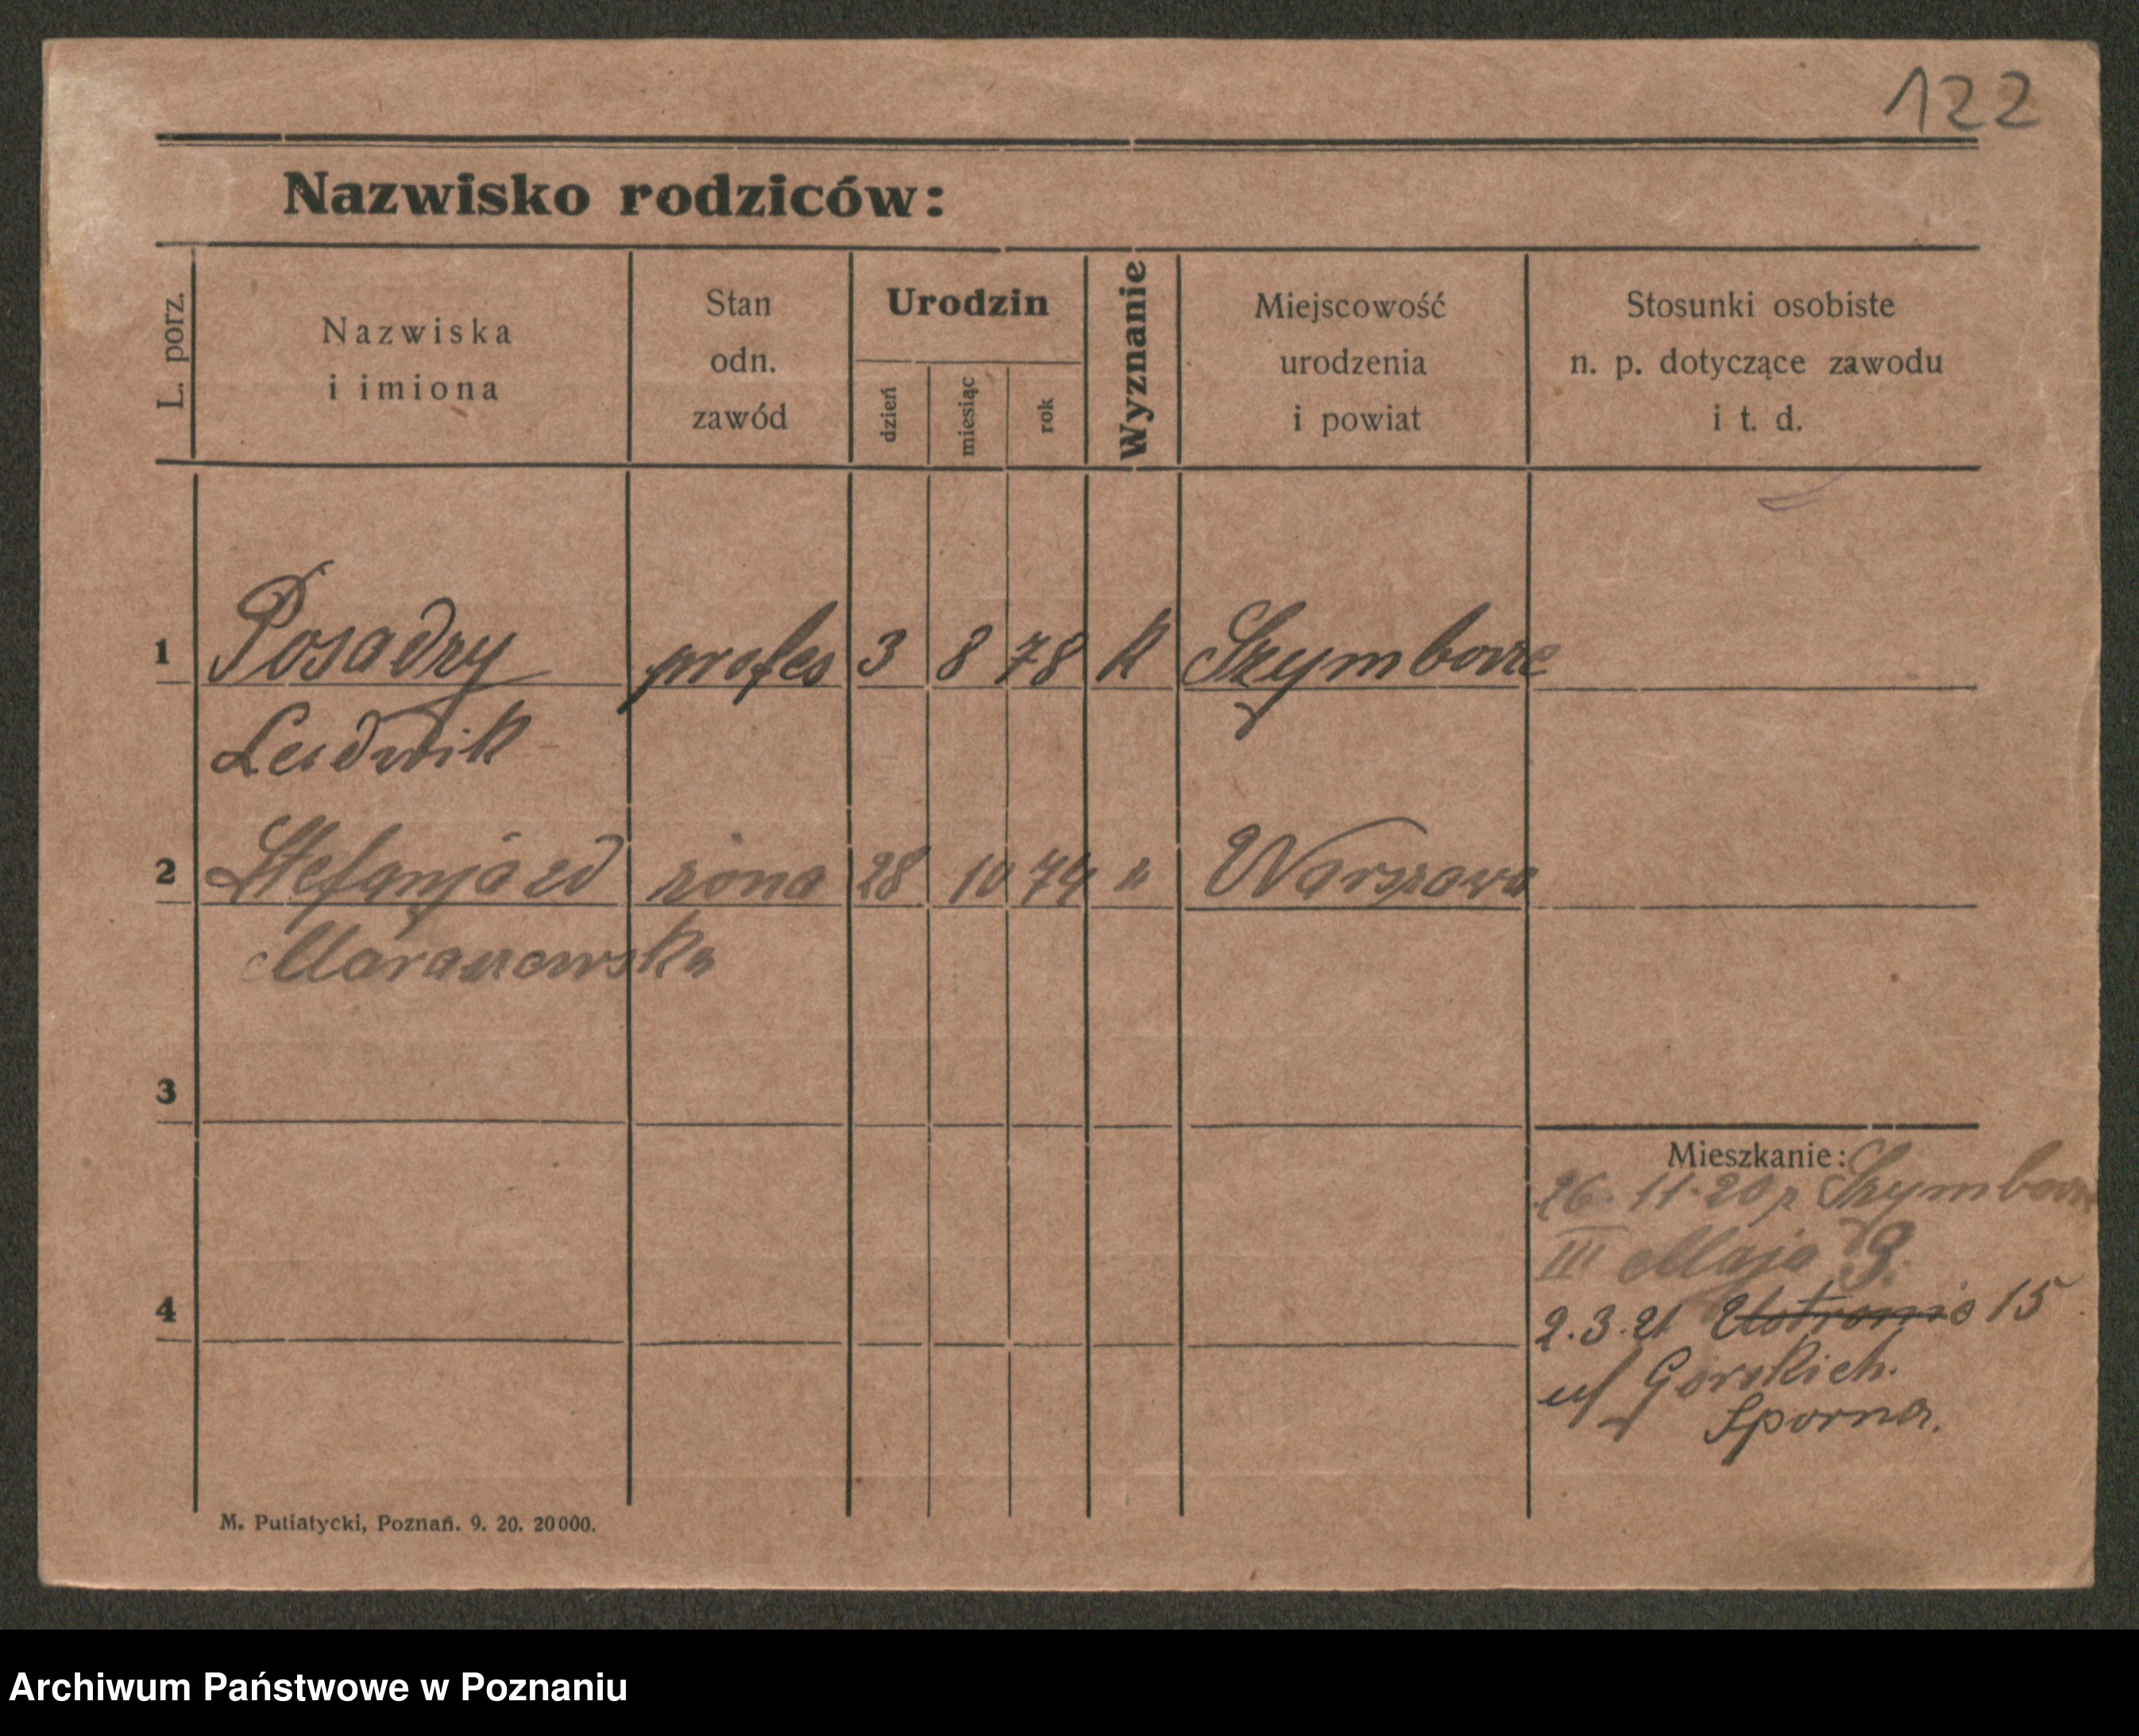 122
Nazwisko rodziców:
L. porz.
Nazwiska
i imiona
Stan
odn.
zawód
Urodzin
dzień
miesiąc
rok
Wyznanie
Miejscowość
urodzenia
i powiat
Stosunki osobiste
n. p. dotyczące zawodu
i t. d.
1 Posadzy profes 3 8 78 k Szymborze
Ludwik
2 Stefanja zd żona 28 10 74 " Warszawa
3
Mieszkanie:
26. 11. 20 z Szymborz
III Maja 9.
4
2.3.21 Ustronie 15
ul Gorskich.
Sporna.
M. Putiatycki, Poznań. 9. 20. 20000.
Archiwum Państwowe w Poznaniu